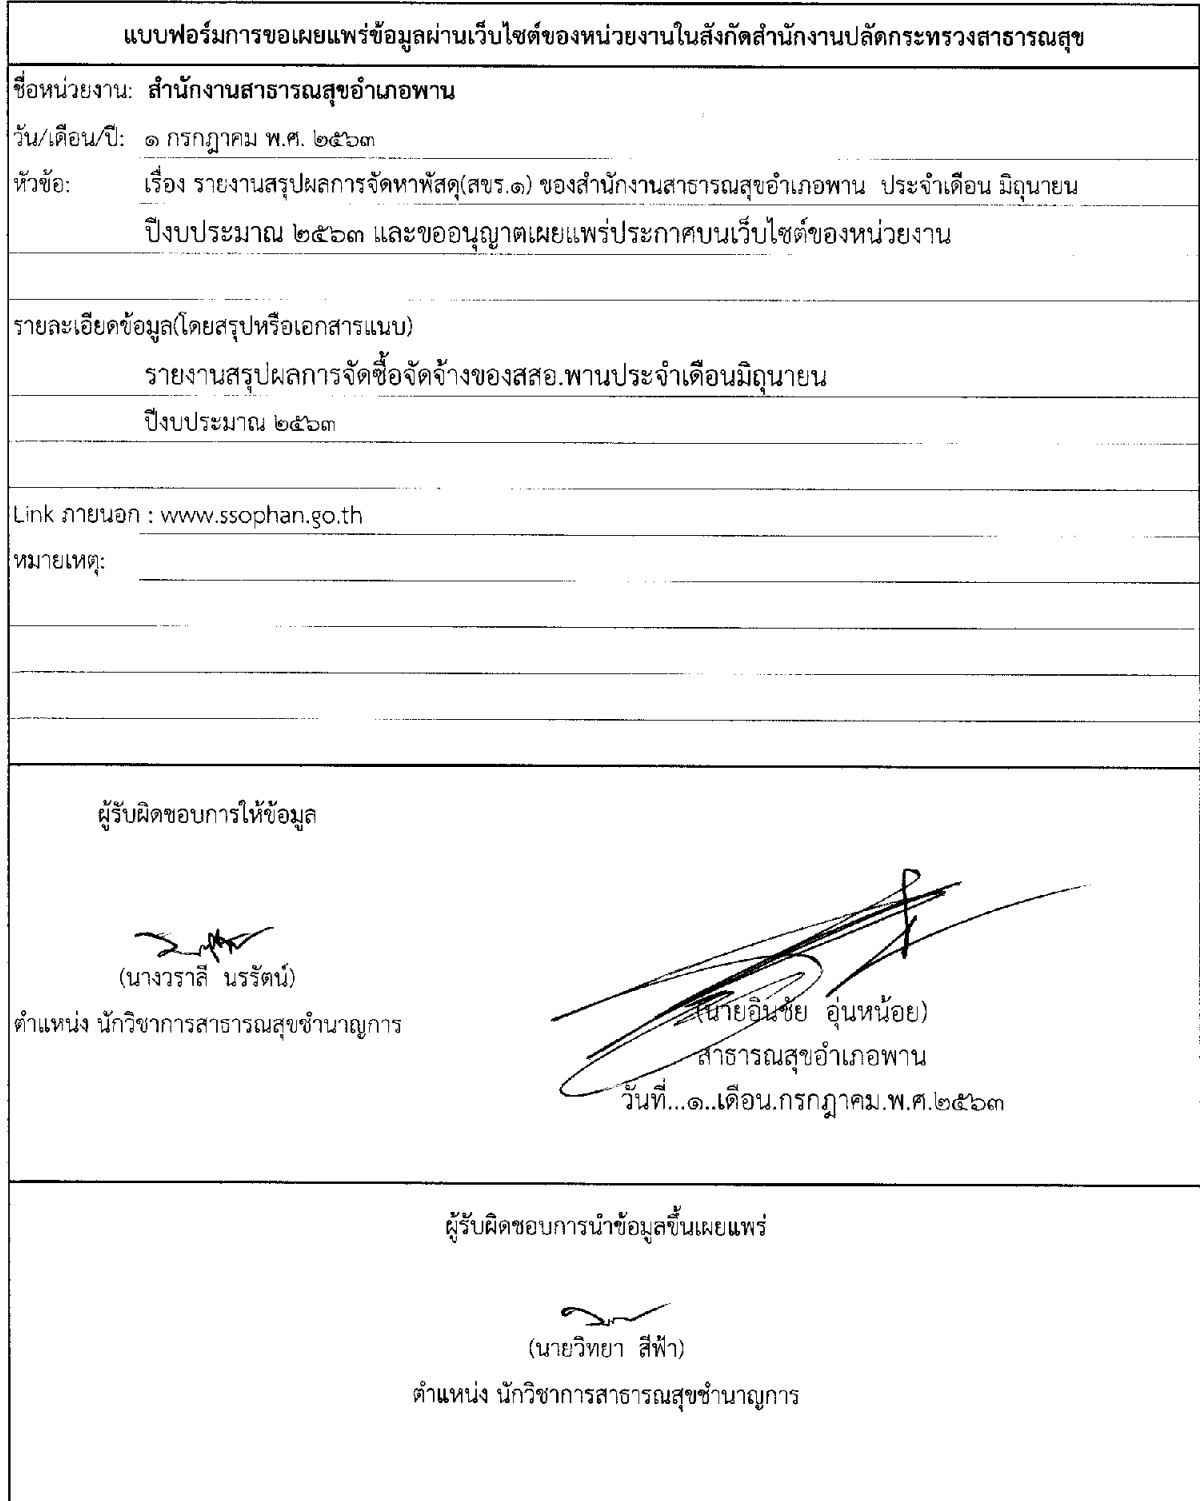 แบบฟอร์มการขอเผยแพร่ข้อมูลผ่านเว็บไซต์ของหน่วยงานในสังกัดสำนักงานปลัดกระทรวงสาธารณสุข
ชื่อหน่วยงาน: สำนักงานสาธารณสุขอำเภอพาน
วัน/เดือน/ปี: ๑ กรกฎาคม พ.ศ. ๒๕๖๓
หัวข้อ: เรื่อง รายงานสรุปผลการจัดหาพัสดุ(สขร.๑) ของสำนักงานสาธารณสุขอำเภอพาน ประจำเดือน มิถุนายน
ปีงบประมาณ ๒๕๖๓ และขออนุญาตเผยแพร่ประกาศบนเว็บไซต์ของหน่วยงาน
รายละเอียดข้อมูล(โดยสรุปหรือเอกสารแนบ)
รายงานสรุปผลการจัดซื้อจัดจ้างของสสอ.พานประจำเดือนมิถุนายน
ปีงบประมาณ ๒๕๖๓
Link ภายนอก : www.ssophan.go.th
หมายเหตุ:
ผู้รับผิดชอบการให้ข้อมูล
(นางวราลี นรรัตน์)
(นายอินชัย อุ่นหน้อย)
ตำแหน่ง นักวิชาการสาธารณสุขชำนาญการ
สาธารณสุขอำเภอพาน
วันที่...๑..เดือน.กรกฎาคม.พ.ศ.๒๕๖๓
ผู้รับผิดชอบการนำข้อมูลขึ้นเผยแพร่
(นายวิทยา สีฟ้า)
ตำแหน่ง นักวิชาการสาธารณสุขชำนาญการ